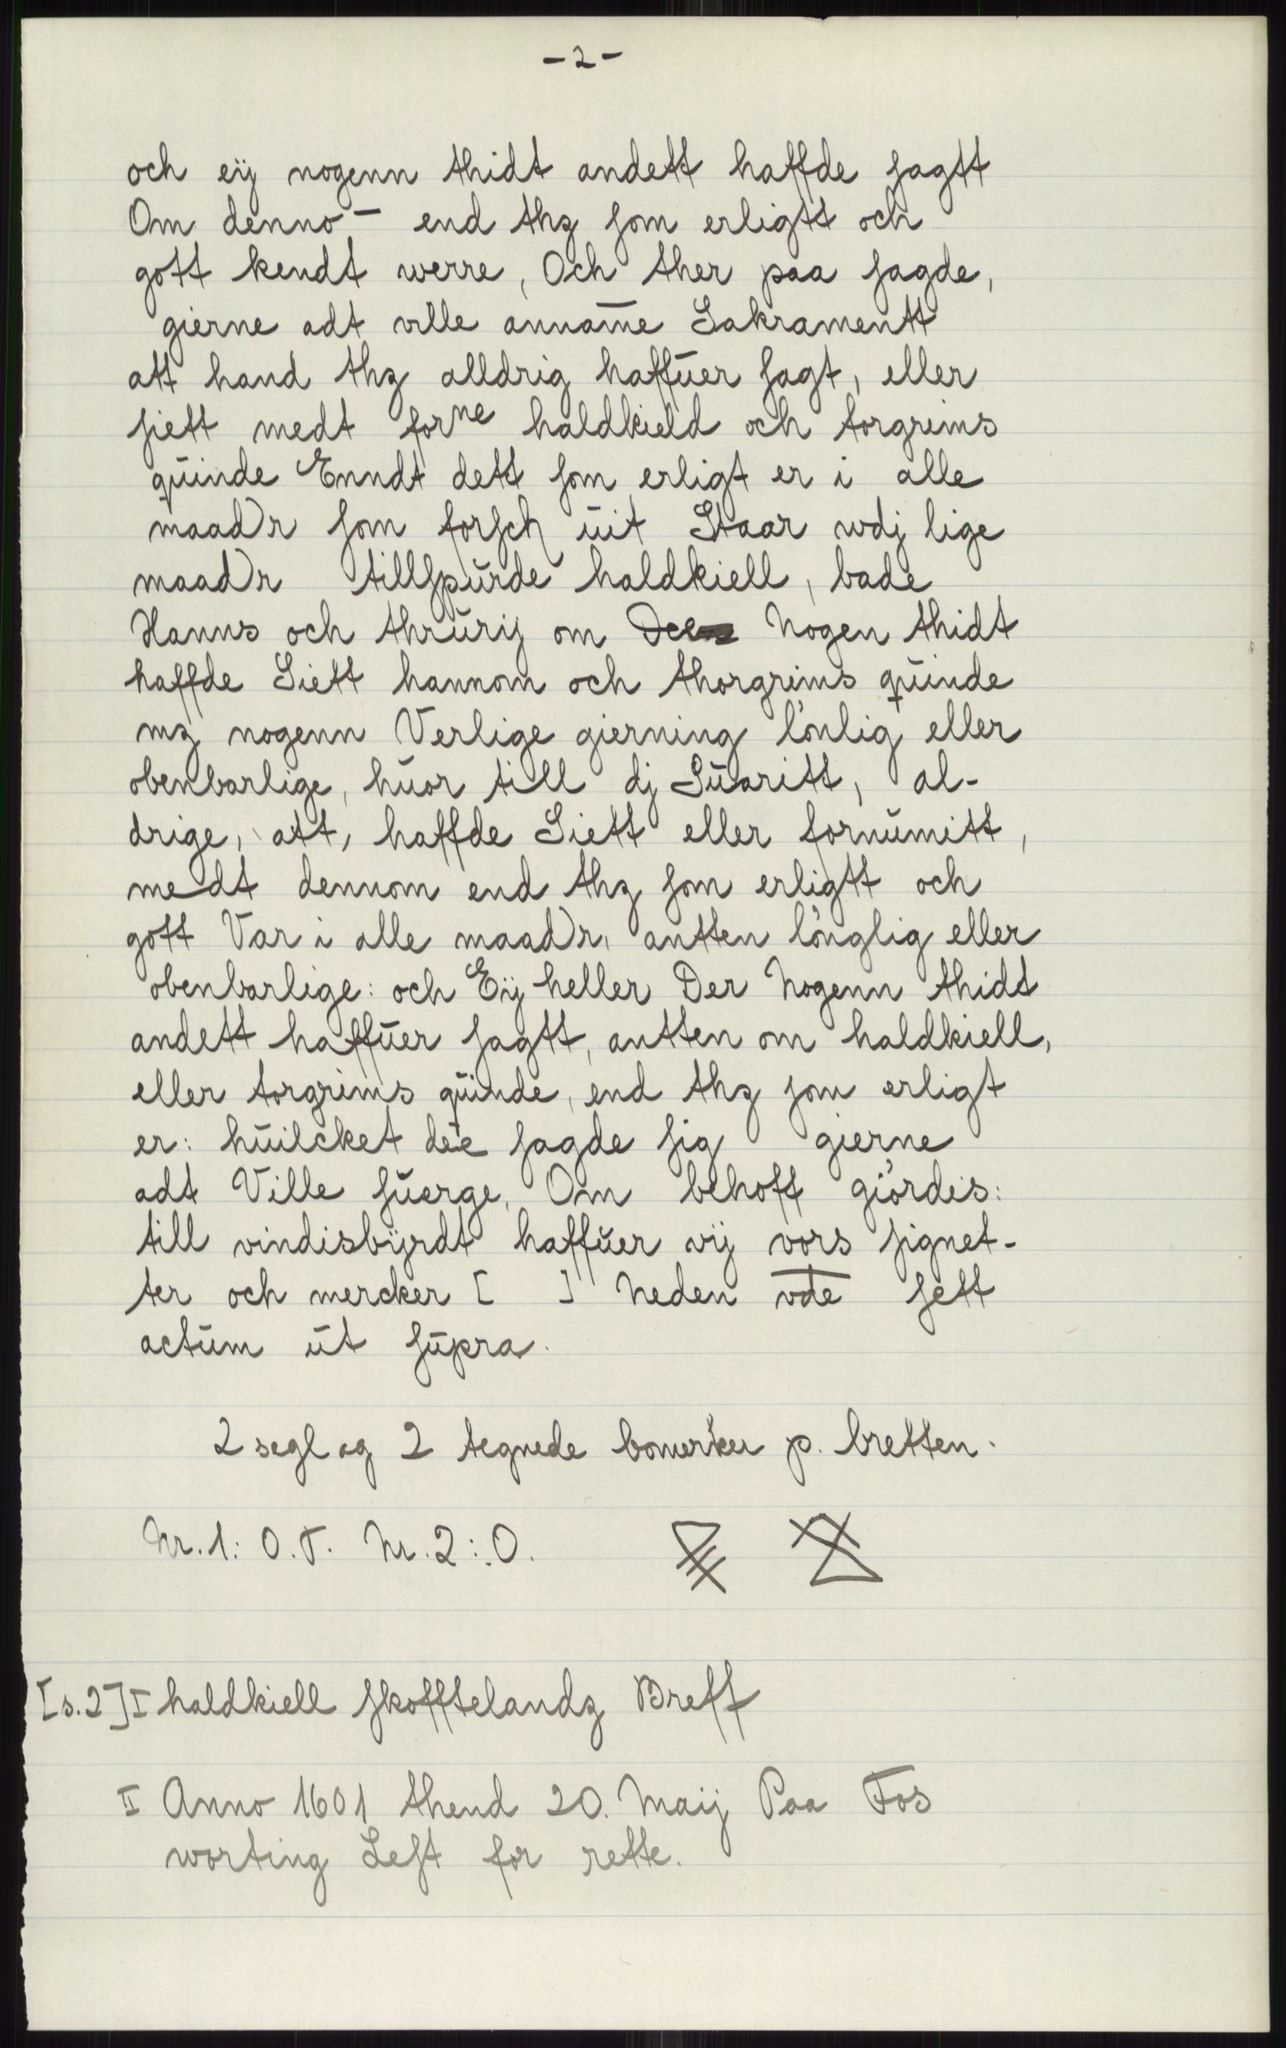 - 2 -
och eij nogenn thidt andett haffde sagtt
Om denno̅ end thz som erligtt och
gott kendt werre, Och ther paa sagde,
gierne adt ville anname̅ Sakramentt
att hand thz alldrig haffuer sagt, eller
siett medt forne haldkield och torgrims
quinde Enndt dett som erligt er i alle
maadr som forsch uit Staar wdj lige
maadr tillspurde haldkiell, bade
Hanns och thrurij om Nogen thidt
haffde Siett hannom och thorgrims quinde
mz nogenn Verlige gierning lönlig eller
obenbarlige, huor till dj Suaritt, al-
drige, att, haffde Siett eller fornumitt,
medt dennom end thz som erligtt och
gott Var i alle maadr, antten lönglig eller
obenbarlige: och Eij heller Der Nogenn thidt
andett haffuer sagtt, antten om haldkiell,
eller torgrims quinde, end thz som erligt
er: huilcket dee sagde sig gierne
adt Ville suerge, Om behoff giördis:
till vindisbyrdt haffuer vij vors signet-
ter och mercker [ ] Neden vde̅ sett
actum ut supra.
2 segl og 2 tegnede bomerker p. bretten.
Nr. 1: O.T. Nr. 2: O.
[s.2] I haldkiell skofftelandz Breff
II Anno 1601 thend 20. Maij Paa Fos
worting Lest for rette.